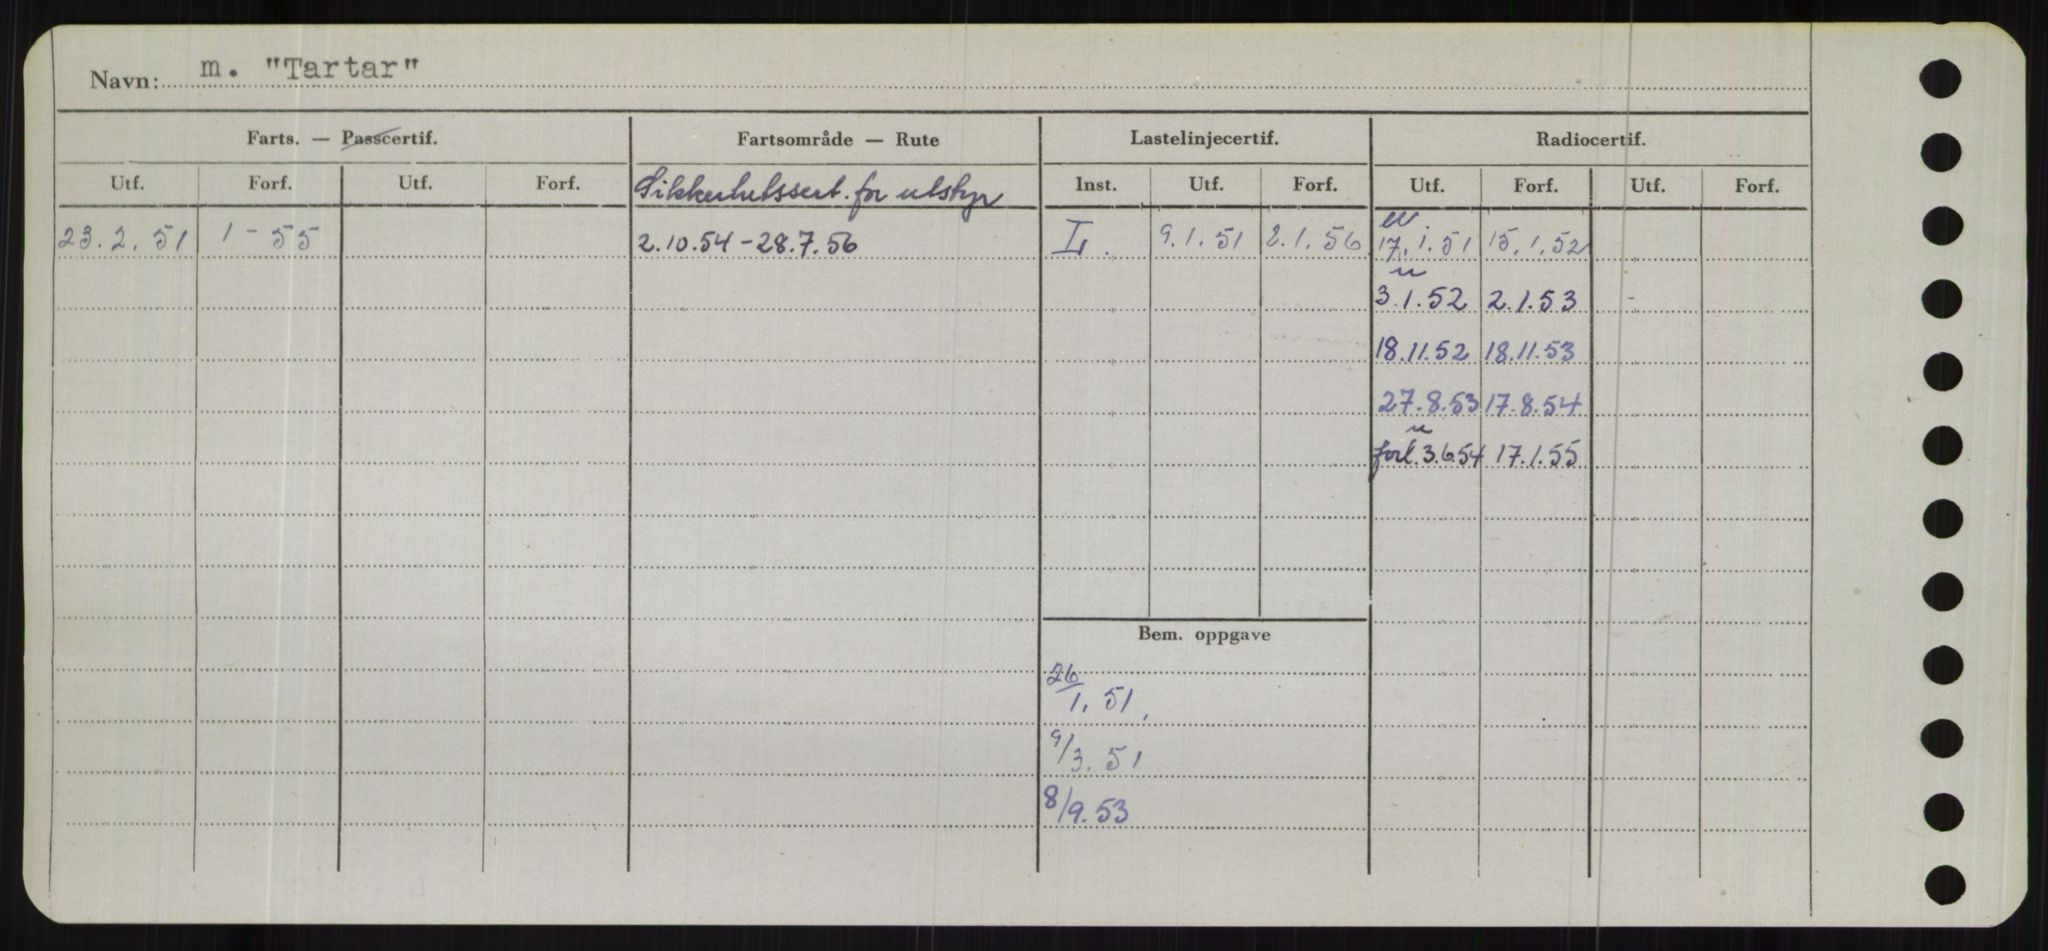 Navn: m. "Tartar"
Farts. — Passcertif. Fartsområde — Rute Lastelinjecertif. Radiocertif.
Utf. Forf. Utf. Forf. Sikkerhetssert. for utstyr Inst. Utf. Forf. Utf. Forf. Utf. Forf.
23.2.51 1-55 2.10.54-28.7.56 L. 9.1.51 2.1.56 17.1.51 15.1.52
3.1.52 2.1.53
18.11.52 18.11.53
27.8.53 17.8.54
forl. 3.6.54 17.1.55
Bem. oppgave
26/1.51.
9/3.51
8/9.53